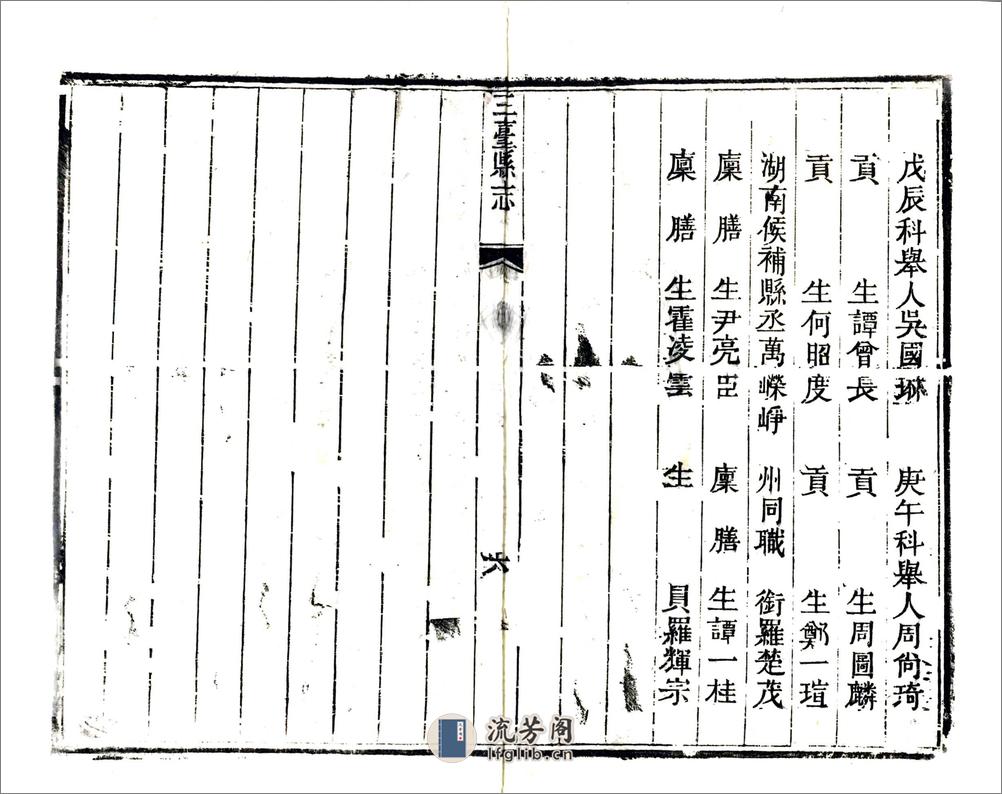 戊辰科舉人吳國琳 庚午科舉人周尙琦
貢生譚曾長 貢生周圖麟
貢生何昭度 貢生鄭一瑄
湖南候補縣丞萬嶸崢 州同職銜羅楚茂
廩膳生尹亮臣 廩膳生譚一桂
廩膳生霍凌雲 生員羅輝宗
三臺縣志
六
流芳阁
lfglib.cn